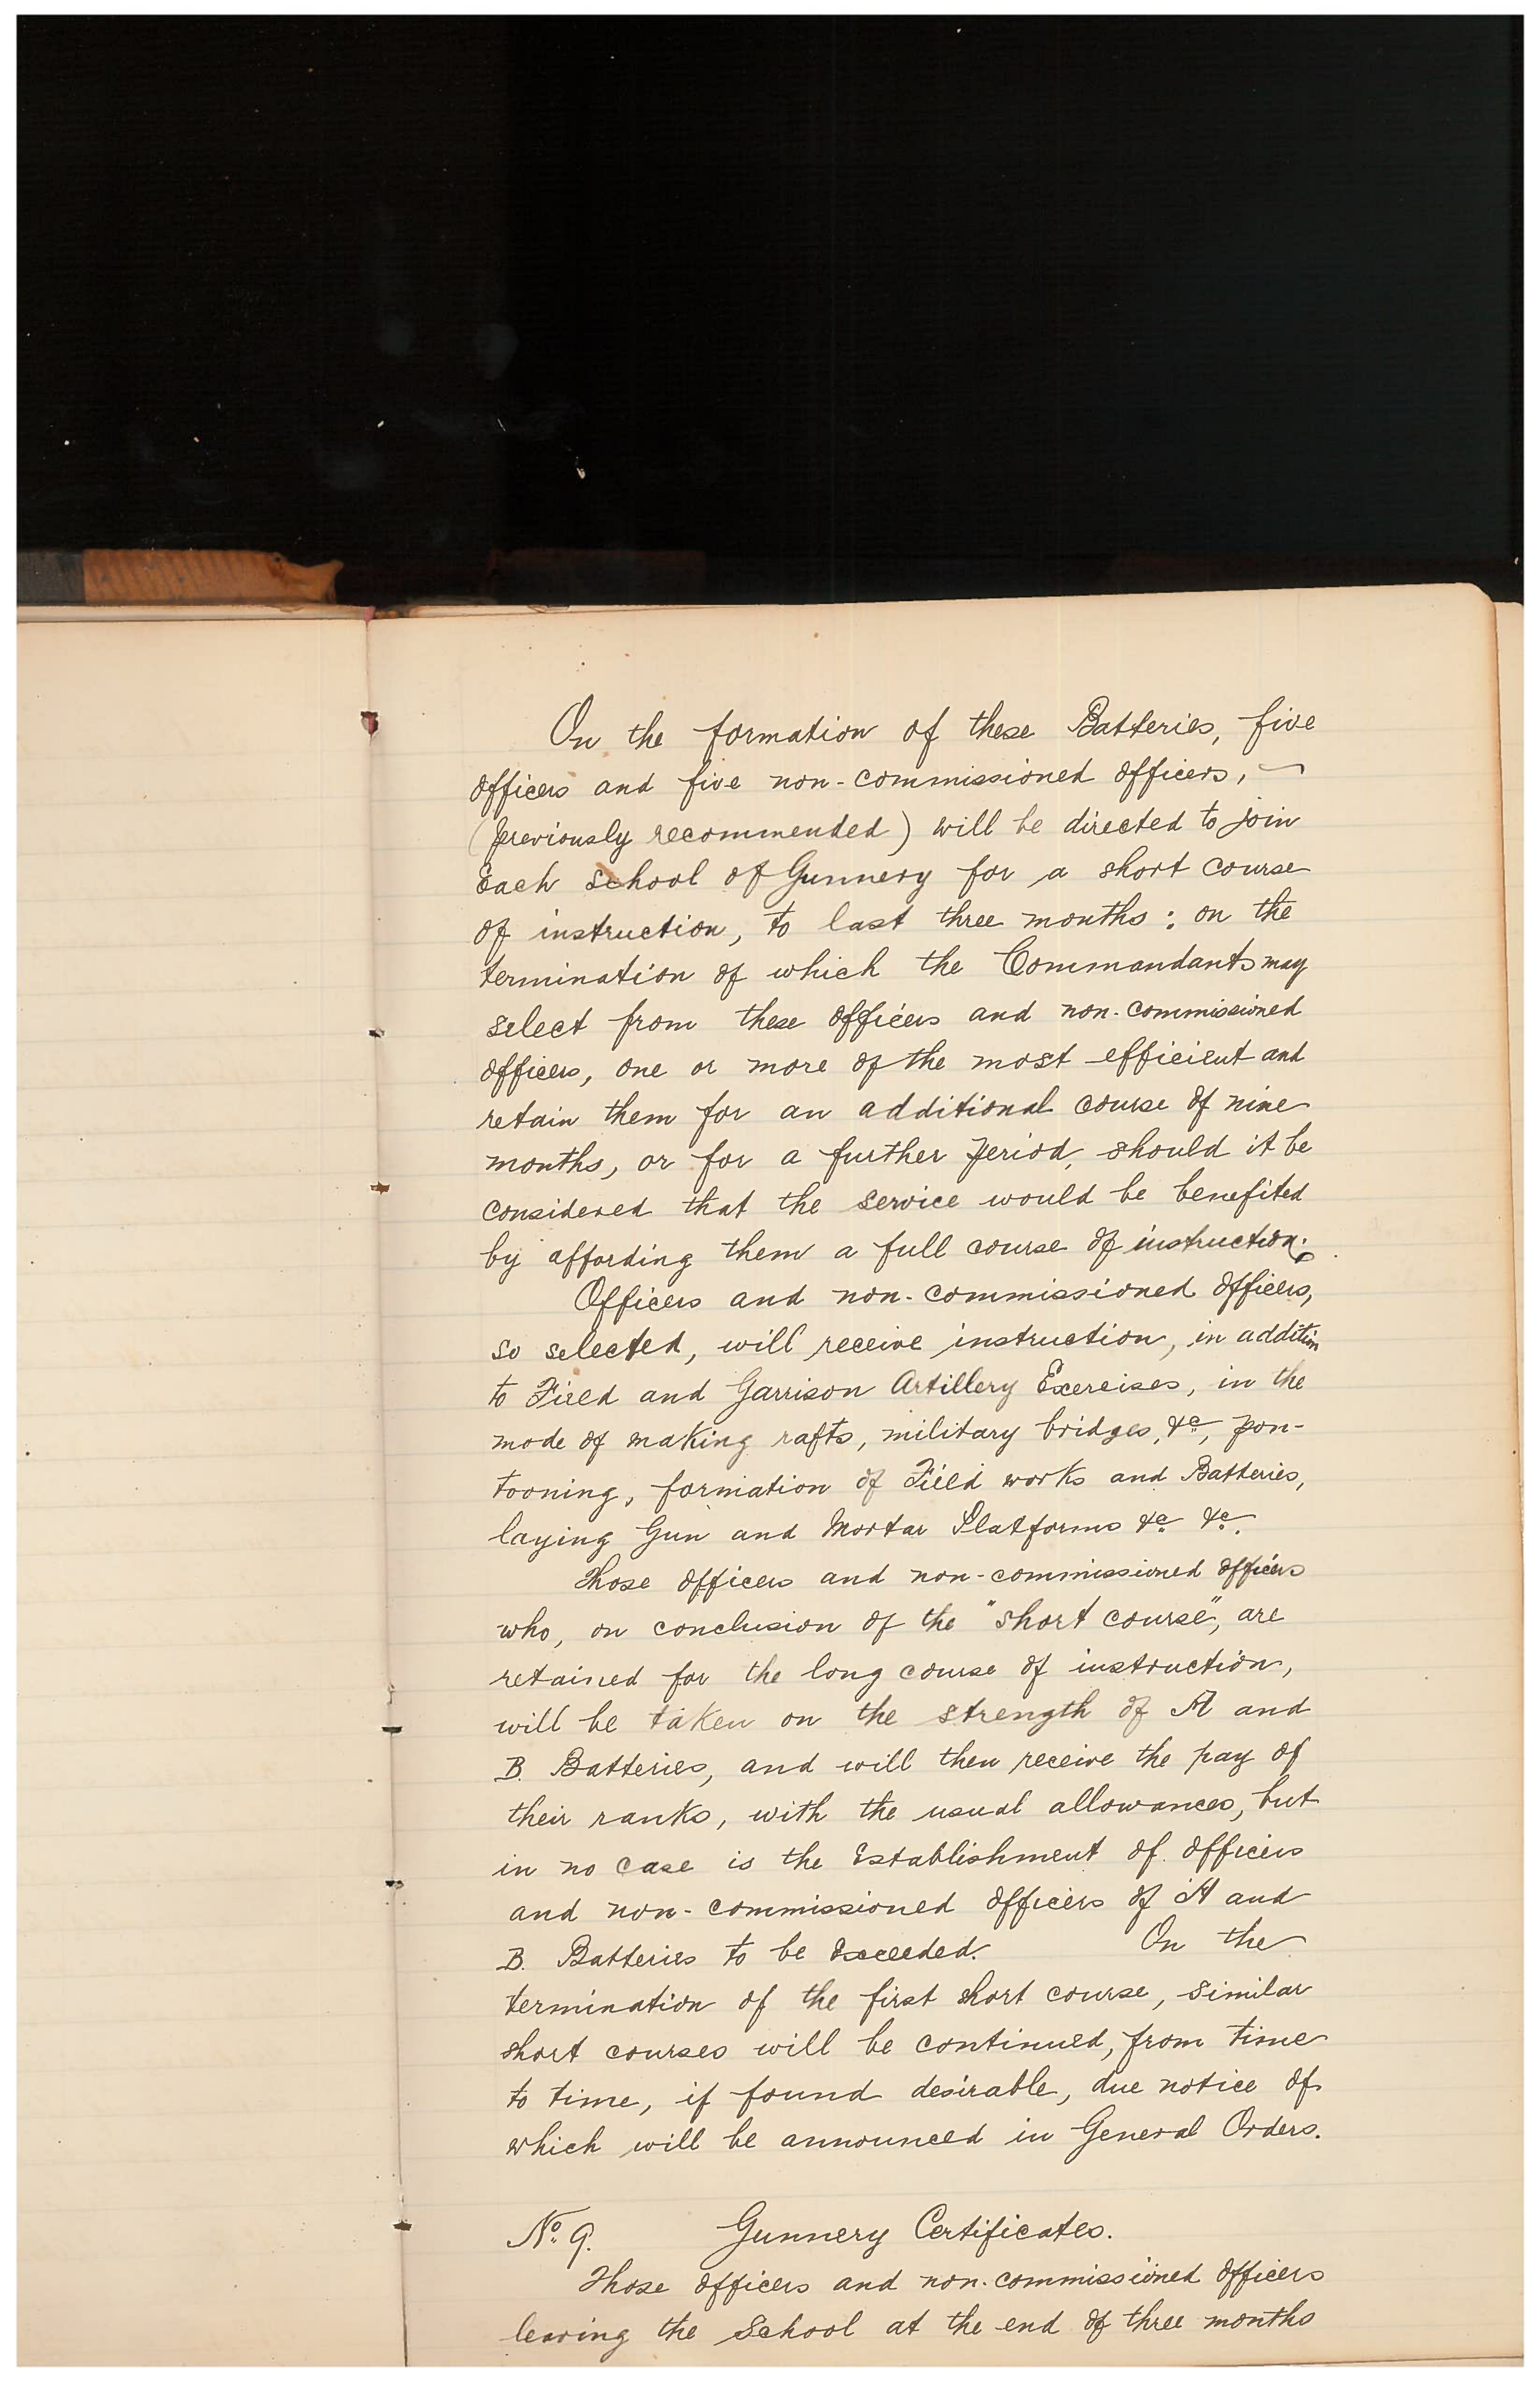 On the formation of these Batteries, five
officers and five non-commissioned officers, -
(previously recommended) will be directed to join
Each School of Gunnery for a short course
of instruction, to last three months: on the
termination of which the Commandants may
select from these officers and non-commissioned
officers, one or more of the most efficient and
retain them for an additional course of nine
months, or for a further period, should it be
considered that the service would be benefited
by affording them a full course of instruction.
Officers and non-commissioned officers,
so selected, will receive instruction, in addition
to Field and Garrison Artillery Exercises, in the
mode of making rafts, military bridges, &c, pon-
tooning, formation of Field works and Batteries,
laying Gun and Mortar Platforms &c &c.
Those officers and non-commissioned officers
who, on conclusion of the "short course", are
retained for the long course of instruction,
will be taken on the strength of A and
B. Batteries, and will then receive the pay of
their ranks, with the usual allowances, but
in no case is the Establishment of officers
and non-commissioned officers of A and
B. Batteries to be Exceeded. On the
termination of the first short course, similar
short courses will be continued, from time
to time, if found desirable, due notice of
which will be announced in General Orders.
No. 9. Gunnery Certificates.
Those officers and non-commissioned officers
leaving the School at the end of three months